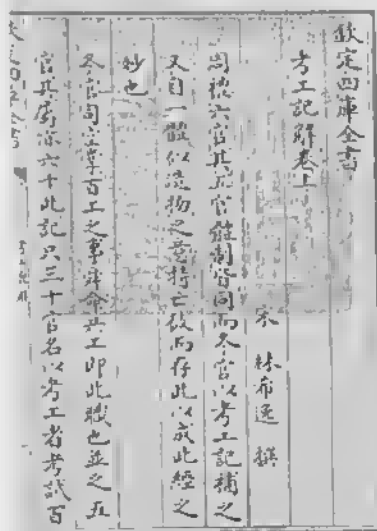 欽定四庫全書
考工記解卷上
宋 林希逸 撰
周禮六官其五官體制皆同而冬官以考工記補之
又自一體似造物之意特亡彼而存此以成此經之
妙也
冬官司空掌百工之事舜命共工即此職也並之五
官其屬亦六十此記只三十官名以考工者考試百
欽定四庫全書
考工記解